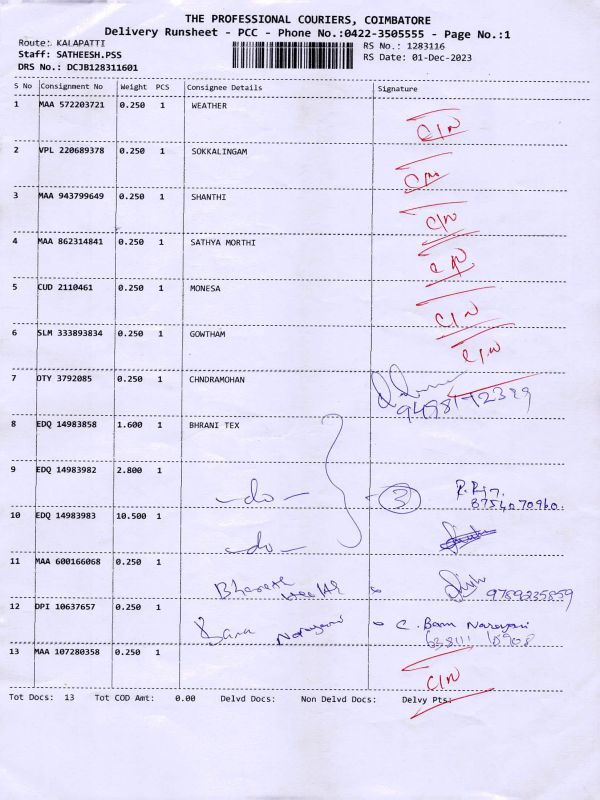 THE PROFESSIONAL COURIERS, COIMBATORE
Delivery Runsheet - PCC - Phone No.:0422-3505555 - Page No.:1
Route: KALAPATTI RS No.: 1283116
Staff: SATHEESH.PSS RS Date: 01-Dec-2023
DRS No.: DCJB128311601
S No Consignment No Weight PCS Consignee Details Signature
1 MAA 572203721 0.250 1 WEATHER C/N
2 VPL 220689378 0.250 1 SOKKALINGAM C/N
3 MAA 943799649 0.250 1 SHANTHI C/N
4 MAA 862314841 0.250 1 SATHYA MORTHI C/N
5 CUD 2110461 0.250 1 MONESA C/N
6 SLM 333893834 0.250 1 GOWTHAM C/N
7 OTY 3792085 0.250 1 CHNDRAMOHAN
8 EDQ 14983858 1.600 1 BHRANI TEX
9 EDQ 14983982 2.800 1 -do- - 3 8754070960.
10 EDQ 14983983 10.500 1 -do-
11 MAA 600166068 0.250 1 9789335859
12 DPI 10637657 0.250 1 C. Bam Narayani
13 MAA 107280358 0.250 1 C/N
Tot Docs: 13 Tot COD Amt: 0.00 Delvd Docs: Non Delvd Docs: Delvy Pts: